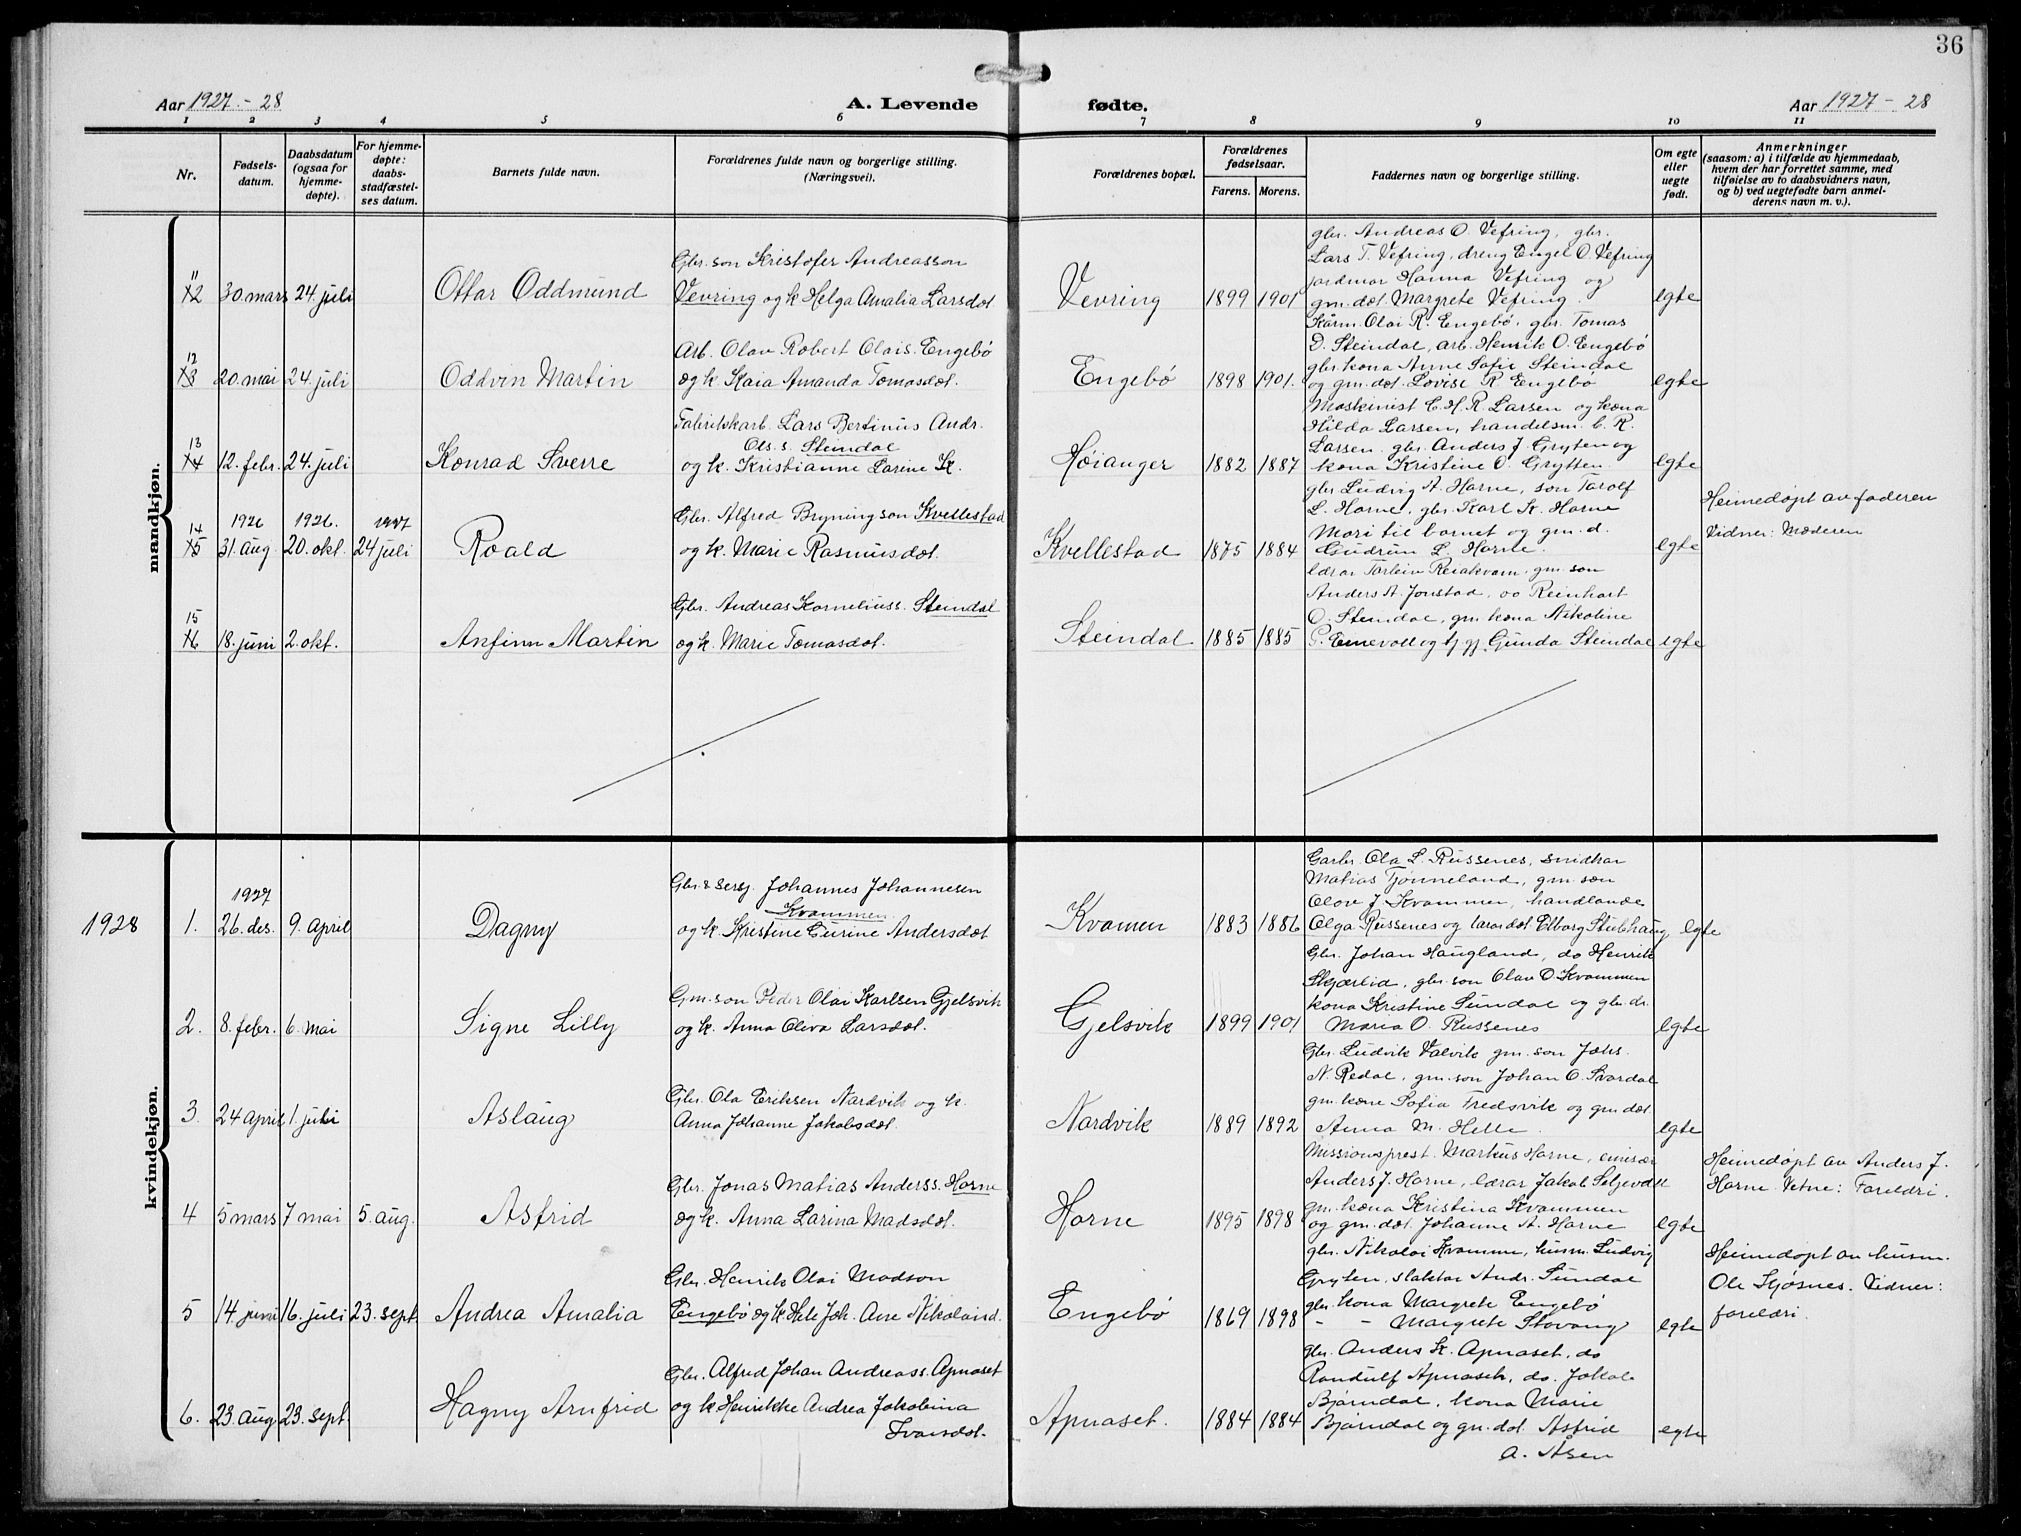 36
Aar 1927 - 28
A. Levende fødte.
Aar 1927 - 28
1 2 3 4 5 6 7 8 9 10 11
Nr.
Fødsels-
datum.
Daabsdatum
(ogsaa for
hjemme-
døpte).
For hjemme-
døpte:
daabs-
stadfæstel-
ses datum.
Barnets fulde navn.
Forældrenes fulde navn og borgerlige stilling.
(Næringsvei).
Forældrenes bopæl.
Forældrenes
fødselsaar.
Farens. Morens.
Faddernes navn og borgerlige stilling.
Om egte
eller
uegte
født.
Anmerkninger
(saasom: a) i tilfælde av hjemmedaab,
hvem der har forrettet samme, med
tilføielse av to daabsvidners navn,
og b) ved uegtefødte barn anmel-
derens navn m. v.).
mandkjøn.
11
12 30. mars 24. juli
Ottar Oddmund
Gbr. son Kristofer Andreasson
Vevring og k. Helga Amalia Larsdot.
Vevring
1899 1901
gbr. Andreas O. Vefring, gbr.
Lars T. Vefring, dreng Engel O. Vefring
jordmor Hanna Vefring og
gm. dot. Margrete Vefring.
egte
12
13 20. mai 24. juli
Oddvin Martin
Arb. Olav Robert Olais. Engebö
og k. Kaia Amanda Tomasdot.
Engebö
1898 1901.
Kårm. Olai R. Engebö, gbr. Tomas
D. Steindal, arb. Henrik O. Engebö
gbr. kona Anne Sofie Steindal
og gm. dot. Lovise R. Engebö
egte
13
14 12. febr. 24. juli
Konrad Sverre
Fabrikkarb. Lars Bertinus Andr.
Ols. s. Steindal
og k. Kristianne Larine K.
Høianger
1882 1887
Maskinist C. H. R. Larsen og kona
Hilda Larsen, handelsm. C. R.
Larsen, gbr. Anders J. Grytten og
kona Kristine O. Grytten.
egte
14
15 1926 31. aug 1926. 20. okt. 1927 24 juli
Roald
Gbr. Alfred Bryningson Kvellestad
og k. Marie Rasmusdot.
Kvellestad
1875 1884
gbr. Ludvig A. Horne, son Tarolf
L. Horne, gbr. Karl K. Horne
Mori til barnet og gm. d.
Gudrun L. Horne.
egte
Heimedøpt av faderen
Vidner: Moderen
15
16 18. juni 2. okt.
Anfinn Martin
Gbr. Andreas Korneliuss. Steindal
og k. Marie Tomasdot.
Steindal
1885 1885
lærar Torleiv Reiakvam, gm. son
Anders A. Jonstad, do Reinhart
O. Steindal, gm. kona Nikoline
P. Enevoll og tj. gj. Gunda Steindal
egte
kvindekjøn.
1928 1. 1927 26. des. 9. april
Dagny
Gbr. & sersj. Johannes Johannesen
Kvammen
og k. Kristine Gurine Andersdot.
Kvamen
1883 1886
Garbr. Ola L. Russenes, snidkar
Matias Tjønneland, gm. son
Olov J. Kvammen, handlande
Olga Russenes og lærardot. Elborg Stubhaug
egte
2. 8. febr. 6. mai
Signe Lilly
Gm. son Peder Olai Karlsen Gjelsvik
og k. Anna Oliva Larsdot.
Gjelsvik
1899 1901
Gbr. Johan Haugland, do Henrik
Skjærlid, gbr. son Olav O. Kvammen
kona Kristine Sundal og gbr. dr.
Maria O. Russenes
egte
3. 24 april 1. juli
Aslaug
Gbr. Ola Eriksen Nardvik og k.
Anna Johanne Jakobsdot.
Nardvik
1889 1892
Gbr. Ludvik Valvik gm. son Johs.
N. Redal, gm. son Johan O. Svordal
gm. kone Sofia Fredsvik og gm. dot.
Anna M. Helle.
egte
4 5 mars 7 mai 5. aug.
Astrid
Gbr. Jonas Matias Anderss. Horne
og k. Anna Larina Madsdot.
Horne
1895 1898
Missionsprest. Markus Horne, emisær
Anders J. Horne, lærar Jakob Seljevoll
gm. kona Kristina Kvammen
og gm. dot. Johanne A. Horne
egte
Heimedøpt av Anders J.
Horne. Vitne: Foreldri.
5 14. juni 16. juli 23. sept.
Andrea Amalia
Gbr. Henrik Olai Madson
Engebö og k. Hele Joh. Ane Nikolaid.
Engebö
1869 1898
gbr. Nikolai Kvamme, husm. Ludvig
Gryten, slaktar Andr. Sundal
gbr. kona Margrete Engebö
- - Margrete Stavang
egte
Heimedøpt av husm.
Ole Kjøsnes. Vidner:
foreldri.
6. 23. aug. 23. sept.
Hagny Arnfrid
Gbr. Alfred Johan Andreass. Apnaset
og k. Henrikke Andrea Jakobina
Ivarsdot.
Apnaset.
1884 1884
gbr. Anders K. Apnaset, do
Randulf Apnaset, do. Jakob
Bjørndal, kona Marie
Bjørndal og gm. dot. Astrid
A. Åsen
egte